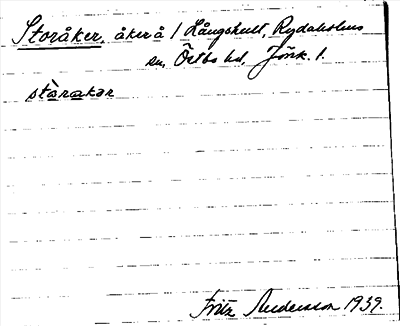 Storåker, åker å 1 Långhult, Rydaholms
sn, Östbo hd, Jönk. l.
stòrakər
Fritz Andersson 1939.